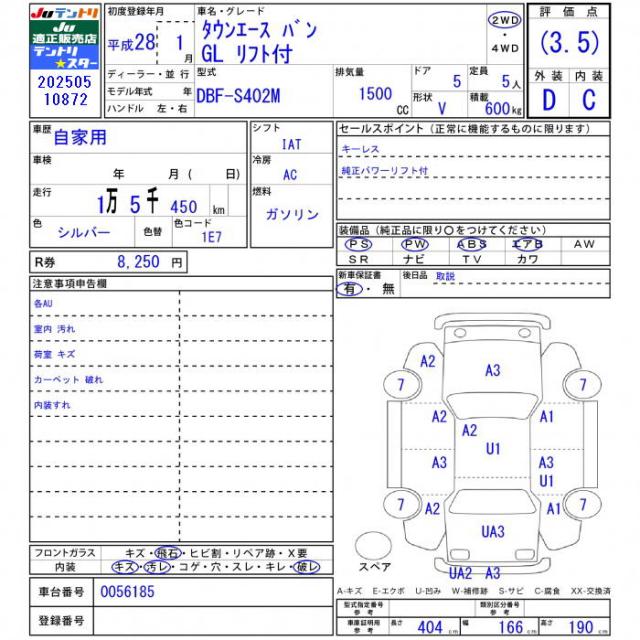 Juテントリ
Ju
適正販売店
テントリ
★スター
202505
10872
初度登録年月
平成28 1月
ディーラー・並行
モデル年式 年
ハンドル 左・右
車名・グレード
タウンエース バン
GL リフト付
2WD
・
4WD
型式
DBF-S402M
排気量
1500
CC
ドア
5
定員
5人
形状
V
積載
600kg
評価点
(3.5)
外装 内装
D C
車歴
自家用
車検
年 月( 日)
走行
1万 5千 450 km
色
シルバー
色替
色コード
1E7
シフト
IAT
冷房
AC
燃料
ガソリン
セールスポイント(正常に機能するものに限ります)
キーレス
純正パワーリフト付
装備品(純正品に限り〇をつけてください)
PS PW ABS エアB AW
SR ナビ TV カワ
新車保証書
有・無
後日品 取説
R券 8,250 円
注意事項申告欄
各AU
室内 汚れ
荷室 キズ
カーペット 破れ
内装すれ
フロントガラス キズ・飛石・ヒビ割・リペア跡・X要
内装 キズ・汚レ・コゲ・穴・スレ・キレ・破レ
車台番号 0056185
登録番号
A2 A3
7 7
A2 A2 A1
U1
A3 A3
U1
7 7
A2 A1
UA3
スペア
UA2 A3
A-キズ E-エクボ U-凹み W-補修跡 S-サビ C-腐食 XX-交換済
型式指定番号
参考
類別区分番号
参考
車庫証明用
参考
長さ 404 cm 幅 166 cm 高さ 190 cm